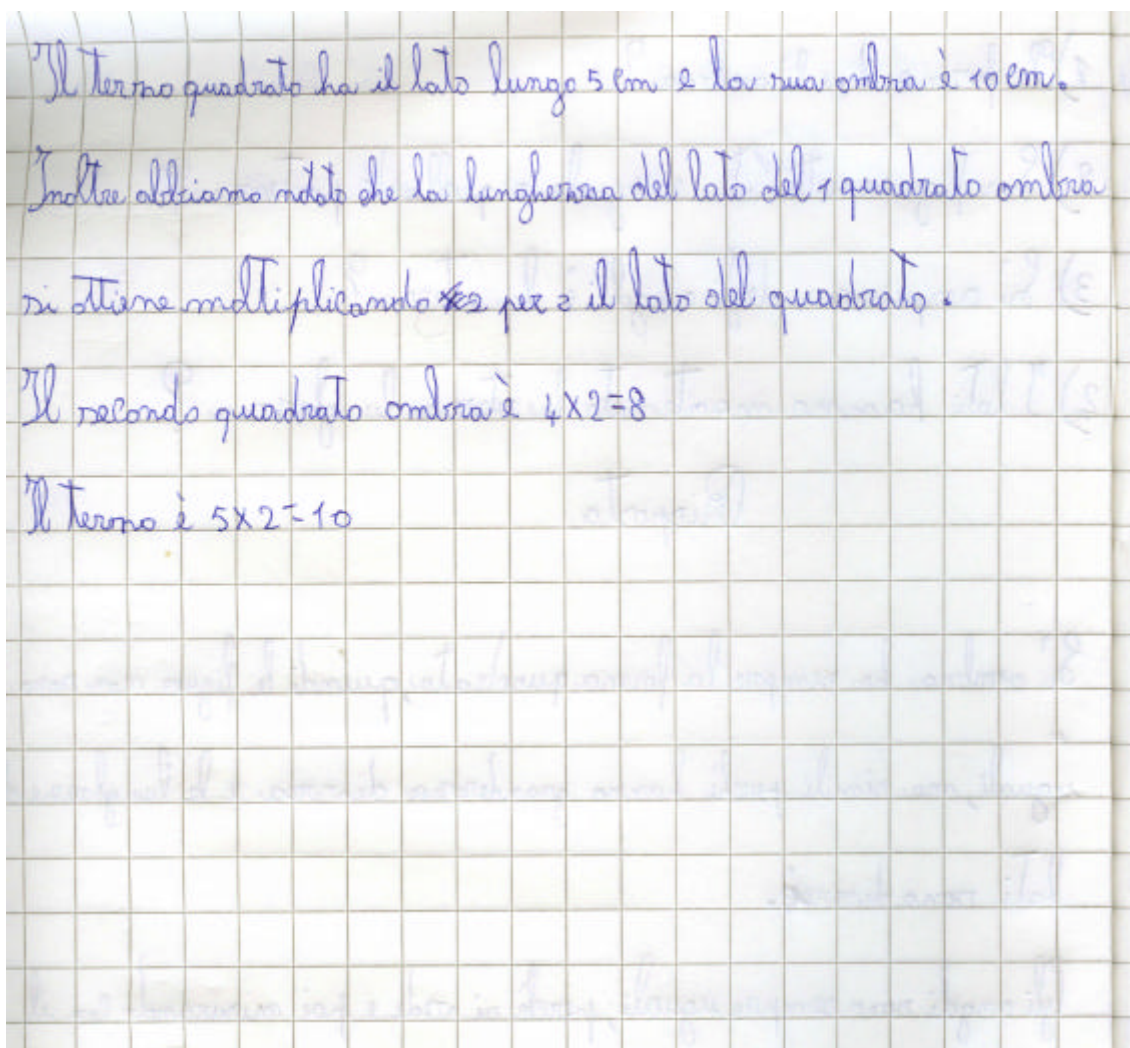 Il terzo quadrato ha il lato lungo 5 cm e la sua ombra è 10 cm.
Inoltre abbiamo notato che la lunghezza del lato del 1 quadrato ombra
si ottiene moltiplicando per 2 il lato del quadrato.
Il secondo quadrato ombra è 4X2=8
Il terzo è 5X2=10